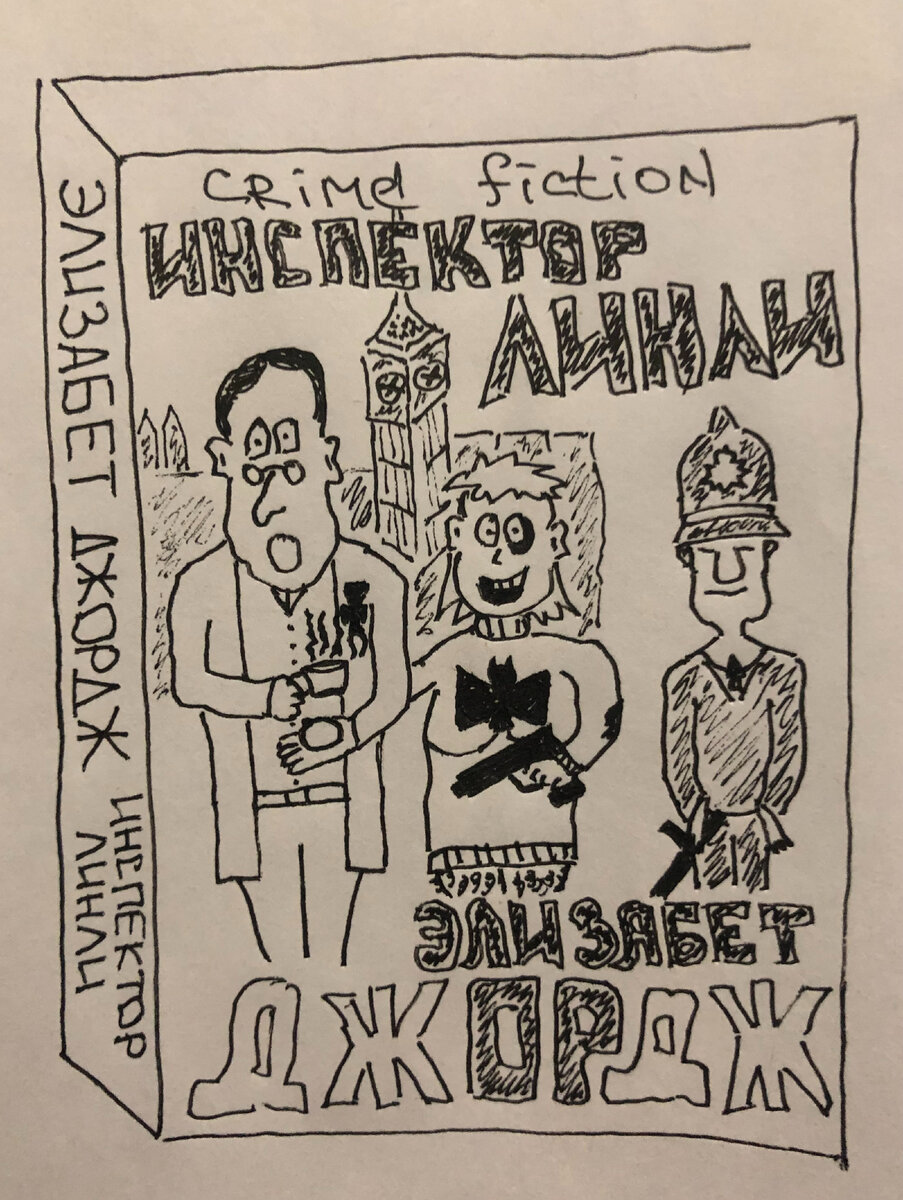 CRiMe fiCTiON
ИНСПЕКТОР
ЛИНЛИ
ЭЛИЗАБЕТ
ДЖОРДЖ
ЭЛИЗАБЕТ ДЖОРДЖ
ИНСПЕКТОР
ЛИНЛИ